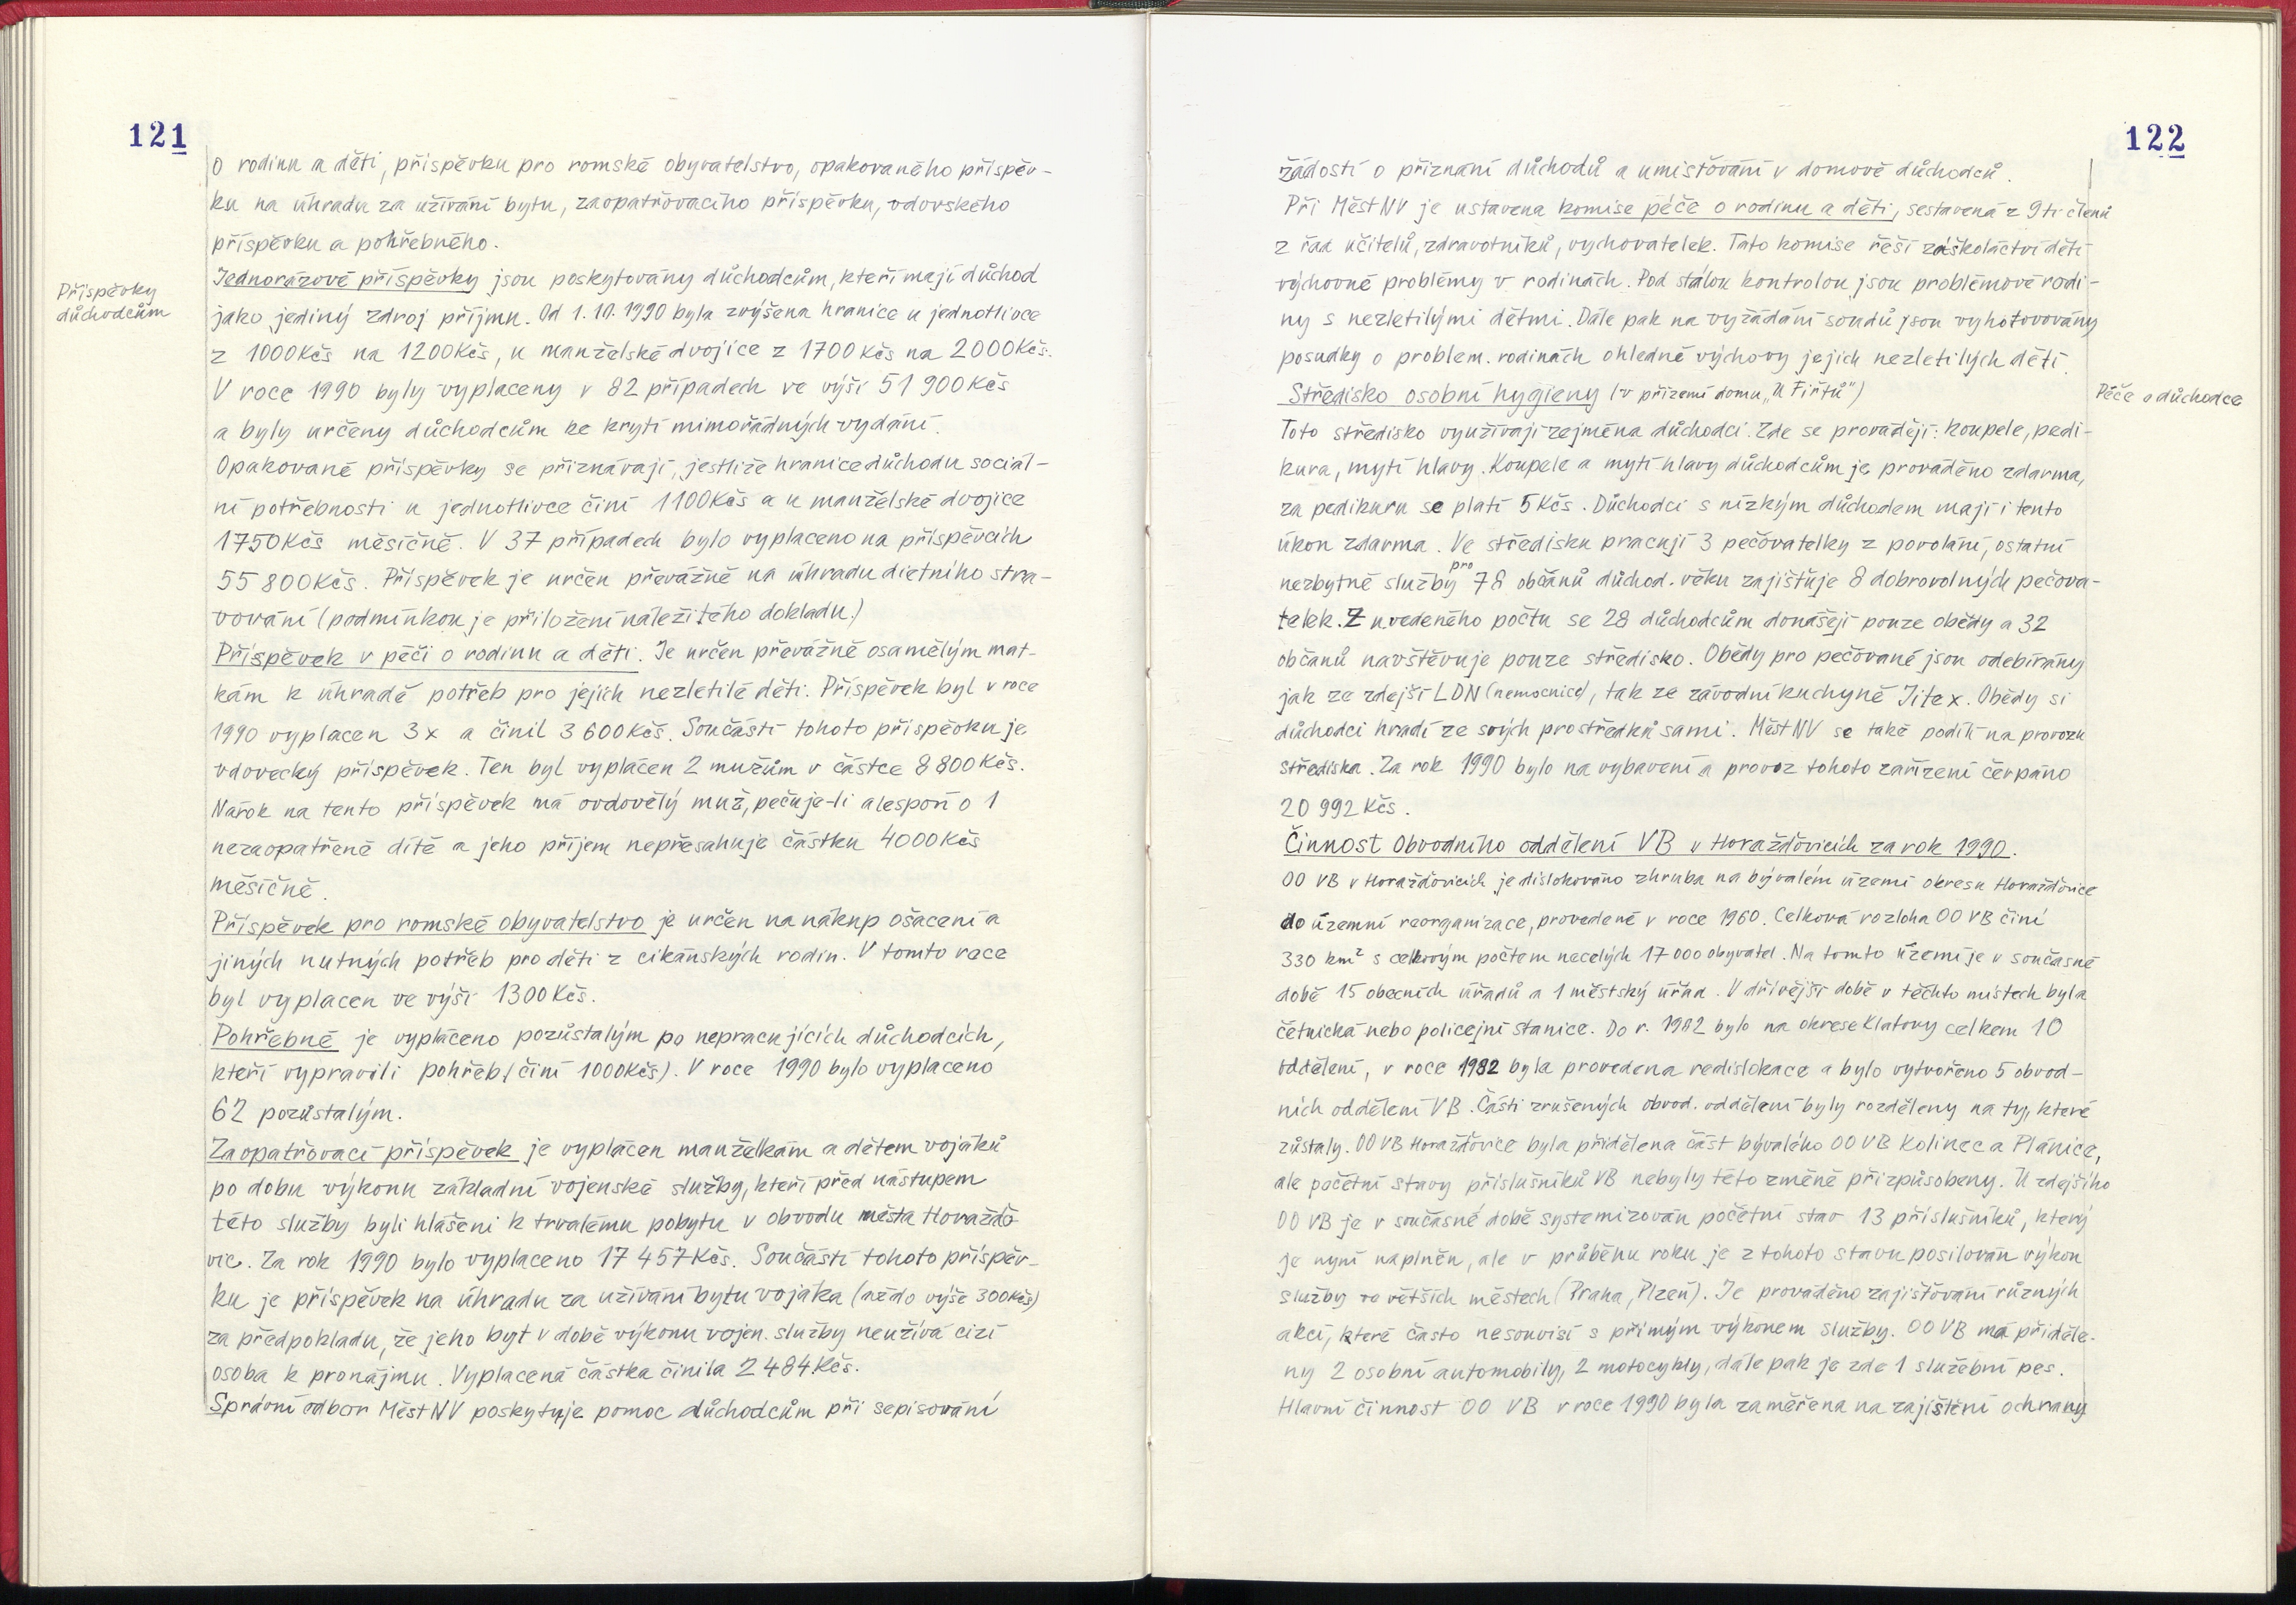 121
o rodinu a děti, příspěvku pro romské obyvatelstvo, opakovaného příspěv-
ku na úhradu za užívání bytu, zaopatřovacího příspěvku, vdovského
příspěvku a pohřebného.
Příspěvky
důchodcům
Jednorázové příspěvky jsou poskytovány důchodcům, kteří mají důchod
jako jediný zdroj příjmu. Od 1.10.1990 byla zvýšena hranice u jednotlivce
z 1000Kčs na 1200Kčs, u manželské dvojice z 1700Kčs na 2000Kčs.
V roce 1990 byly vyplaceny v 82 případech ve výši 51 900Kčs
a byly určeny důchodcům ke krytí mimořádných vydání.
Opakované příspěvky se přiznávají, jestliže hranice důchodu sociál-
ní potřebnosti u jednotlivce činí 1100Kčs a u manželské dvojice
1750Kčs měsíčně. V 37 případech bylo vyplaceno na příspěvcích
55 800Kčs. Příspěvek je určen převážně na úhradu dietního stra-
vování (podmínkou je přiložení náležitého dokladu.)
Příspěvek v péči o rodinu a děti. Je určen převážně osamělým mat-
kám k úhradě potřeb pro jejich nezletilé děti. Příspěvek byl v roce
1990 vyplacen 3x a činil 3 600Kčs. Součástí tohoto příspěvku je
vdovecký příspěvek. Ten byl vyplácen 2 mužům v částce 8 800Kčs.
Nárok na tento příspěvek má ovdovělý muž, pečuje-li alespoň o 1
nezaopatřené dítě a jeho příjem nepřesahuje částku 4000Kčs
měsíčně.
Příspěvek pro romské obyvatelstvo je určen na nákup ošacení a
jiných nutných potřeb pro děti z cikánských rodin. V tomto roce
byl vyplacen ve výši 1300Kčs.
Pohřebné je vypláceno pozůstalým po nepracujících důchodcích,
kteří vypravili pohřeb (činí 1000Kčs). V roce 1990 bylo vyplaceno
62 pozůstalým.
Zaopatřovací příspěvek je vyplácen manželkám a dětem vojáků
po dobu výkonu základní vojenské služby, kteří před nástupem
této služby byli hlášeni k trvalému pobytu v obvodu města Horaždo
vic. Za rok 1990 bylo vyplaceno 17 457Kčs. Součástí tohoto příspěv-
ku je příspěvek na úhradu za užívání bytu vojáka (až do výše 300Kčs)
za předpokladu, že jeho byt v době výkonu vojen. služby neužívá cizí
osoba k pronájmu. Vyplacená částka činila 2 484Kčs.
Správní odbor MěstNV poskytuje pomoc důchodcům při sepisování
122
žádostí o přiznání důchodů a umisťování v domově důchodců.
Při MěstNV je ustavena komise péče o rodinu a děti, sestavená z 9ti členů
z řad učitelů, zdravotníků, vychovatelek. Tato komise řeší záškoláctví dětí
výchovné problémy v rodinách. Pod stálou kontrolou jsou problémové rodi-
ny s nezletilými dětmi. Dále pak na vyžádání soudů jsou vyhotovovány
posudky o problem. rodinách ohledně výchovy jejich nezletilých dětí.
Středisko osobní hygieny (v přízemí domu „U Firtů")
Péče o důchodce
Toto středisko využívají zejména důchodci. Zde se provádějí: koupele, pedi-
kura, mytí hlavy. Koupele a mytí hlavy důchodcům je prováděno zdarma,
za pedikuru se platí 5Kčs. Důchodci s nízkým důchodem mají i tento
úkon zdarma. Ve středisku pracují 3 pečovatelky z povolání, ostatní
nezbytné služby pro 78 občanů důchod. věku zajišťuje 8 dobrovolných pečova-
telek. Z uvedeného počtu se 28 důchodcům donášejí pouze obědy a 32
občanů navštěvuje pouze středisko. Obědy pro pečované jsou odebírány
jak ze zdejší LDN (nemocnice), tak ze závodní kuchyně Jitex. Obědy si
důchodci hradí ze svých prostředků sami. MěstNV se také podílí na provozu
střediska. Za rok 1990 bylo na vybavení a provoz tohoto zařízení čerpáno
20 992Kčs.
Činnost Obvodního oddělení VB v Horažďovicích za rok 1990.
OO VB v Horažďovicích je dislokováno zhruba na bývalém území okresu Horažďovice
do územní reorganizace, provedené v roce 1960. Celková rozloha OO VB činí
330 km² s celkovým počtem necelých 17 000 obyvatel. Na tomto území je v současné
době 15 obecních úřadů a 1 městský úřad. V dřívější době v těchto místech byla
četnická nebo policejní stanice. Do r. 1982 bylo na okrese Klatovy celkem 10
oddělení, v roce 1982 byla provedena redislokace a bylo vytvořeno 5 obvod-
ních oddělení VB. Části zrušených obvod. oddělení byly rozděleny na ty, které
zůstaly. OO VB Horažďovice byla přidělena část bývalého OO VB Kolinec a Plánice,
ale početní stavy příslušníků VB nebyly této změně přizpůsobeny. U zdejšího
OO VB je v současné době systemizován početní stav 13 příslušníků, který
je nyní naplněn, ale v průběhu roku je z tohoto stavu posilován výkon
služby ve větších městech (Praha, Plzeň). Je prováděno zajišťování různých
akcí, které často nesouvisí s přímým výkonem služby. OO VB má přiděle-
ny 2 osobní automobily, 2 motocykly, dále pak je zde 1 služební pes.
Hlavní činnost OO VB v roce 1990 byla zaměřena na zajištění ochrany